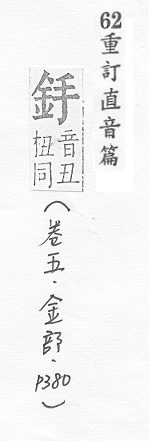 62重訂直音篇
音丑
杻同
(卷五·金部·P380)